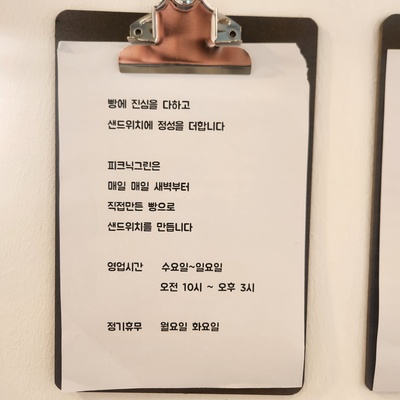 빵에 진심을 다하고
샌드위치에 정성을 더합니다
피크닉그린은
매일 매일 새벽부터
직접만든 빵으로
샌드위치를 만듭니다
영업시간 수요일~일요일
오전 10시 ~ 오후 3시
정기휴무 월요일 화요일